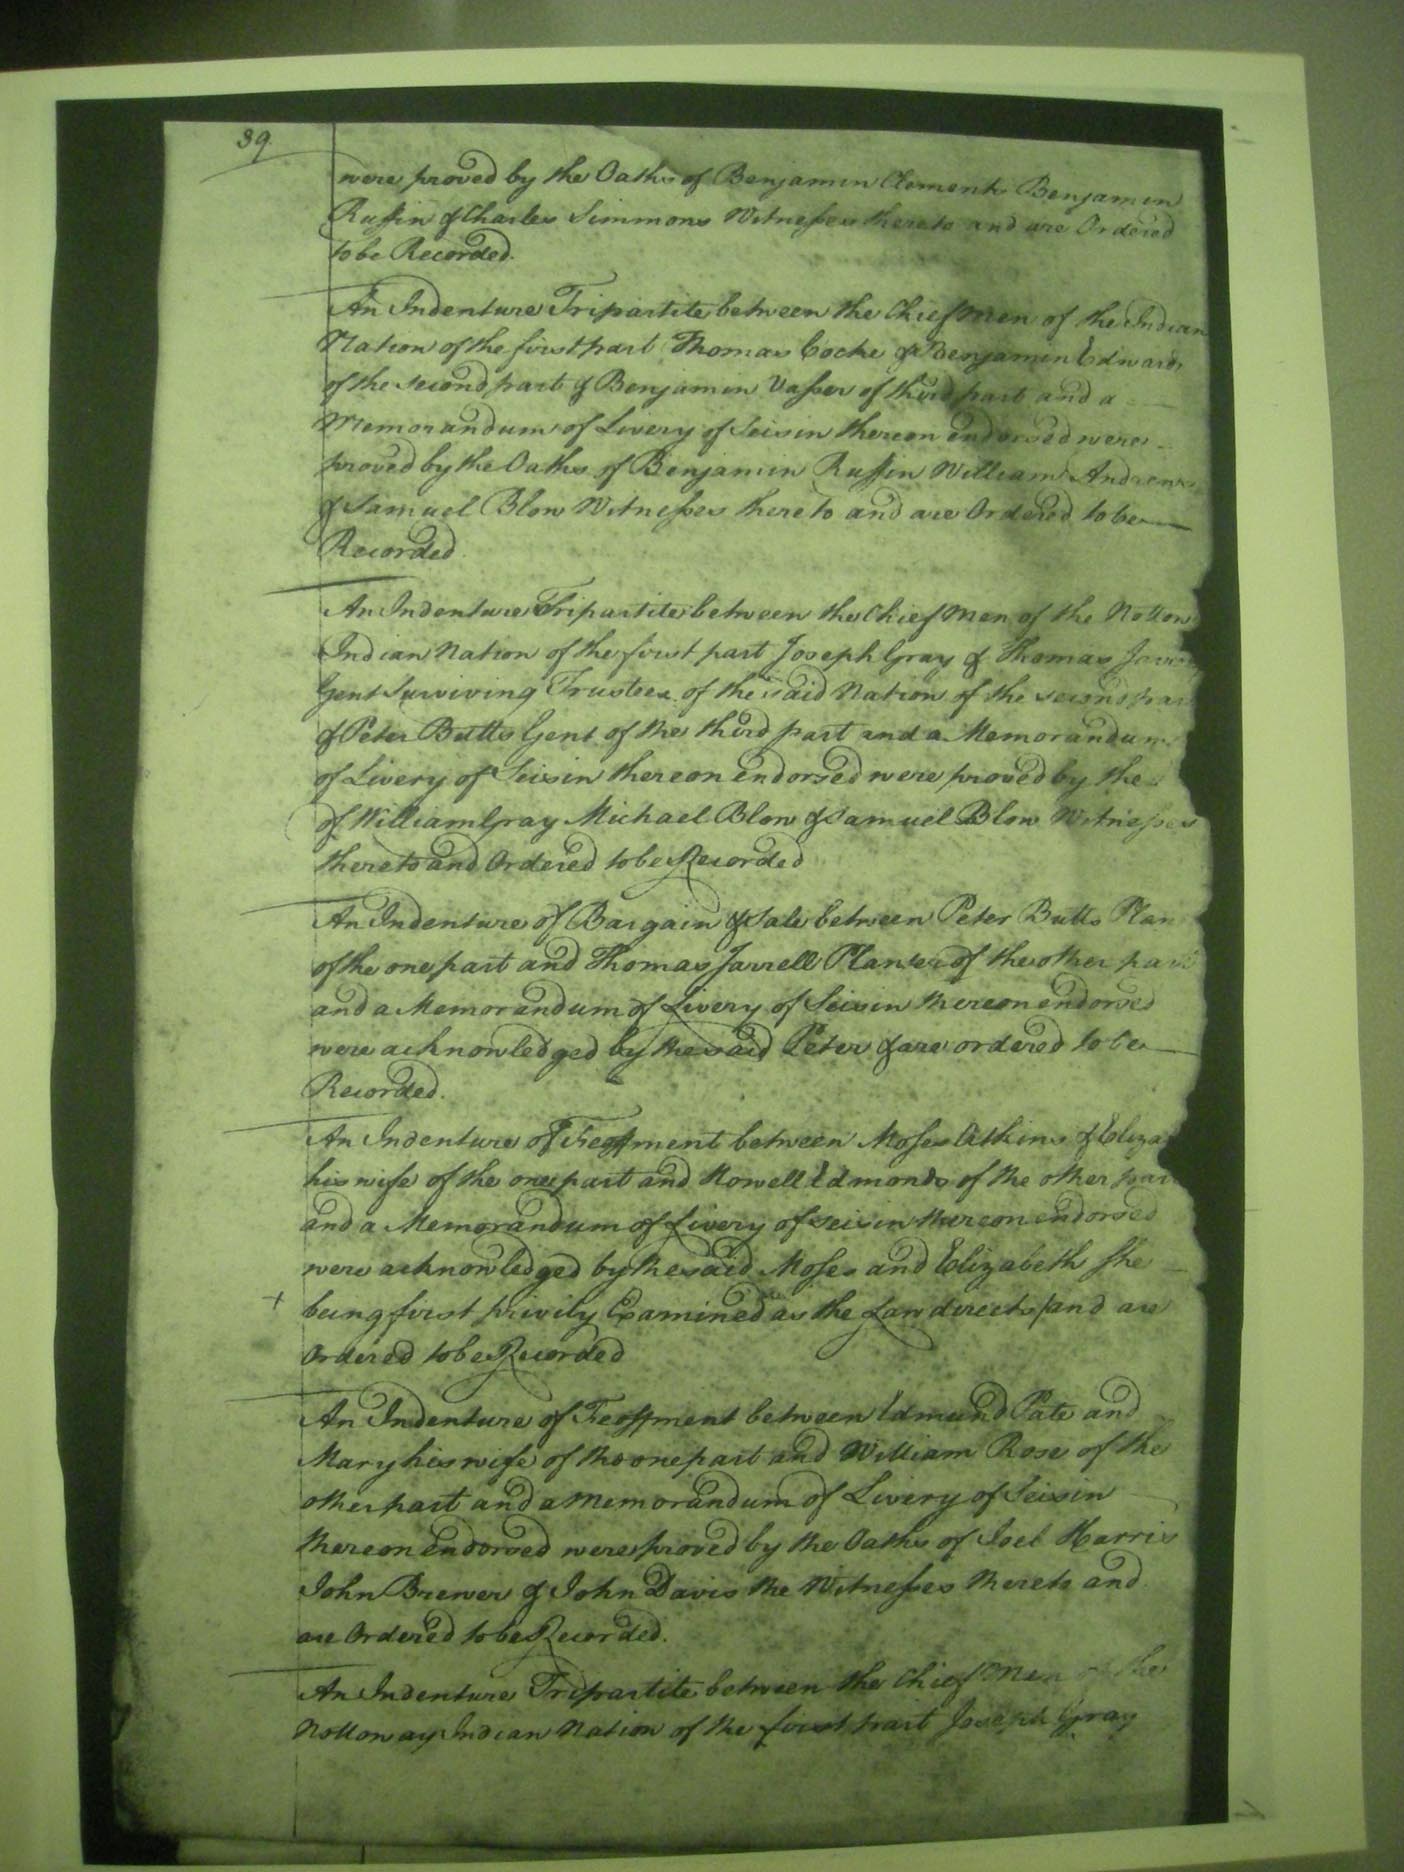 39
were proved by the Oaths of Benjamin Clements Benjamin
Ruffin & Charles Simmons Witnesses thereto and are Ordered
to be Recorded.
An Indenture Tripartite between the Chief Men of the Indian
Nation of the first part Thomas Cocke & Benjamin Edwards
of the second part & Benjamin Vasser of third part and a
Memorandum of Livery of Seisin thereon endorsed were
proved by the Oaths of Benjamin Ruffin William Andrews
& Samuel Blow Witnesses thereto and are Ordered to be
Recorded.
An Indenture Tripartite between the Chief Men of the Nottow
Indian Nation of the first part Joseph Gray & Thomas
Gent Surviving Trustees of the said Nation of the second par
& Peter Butts Gent of the third part and a Memorandum
of Livery of Seisin thereon endorsed were proved by the
of William Gray Michael Blow & Samuel Blow Witnesses
thereto and Ordered to be Recorded
An Indenture of Bargain & Sale between Peter Butts Plan
of the one part and Thomas Jarrell Planter of the other part
and a Memorandum of Livery of Seisin thereon endorsed
were acknowledged by the said Peter & are ordered to be
Recorded.
An Indenture of Feoffment between Moses Atkins & Eliza
his wife of the one part and Howell Edmonds of the other par
and a Memorandum of Livery of seisin thereon endorsed
were acknowledged by the said Moses and Elizabeth She
+ being first privily Examined as the Law directs and are
Ordered to be Recorded
An Indenture of Feoffment between Edmund Pate and
Mary his wife of the one part and William Rose of the
other part and a Memorandum of Livery of Seisin
thereon endorsed were proved by the Oaths of Joel Harris
John Brewer & John Davis the Witnesses thereto and
are Ordered to be Recorded.
An Indenture Tripartite between the Chief Men of the
Nottoway Indian Nation of the first part Joseph Gray